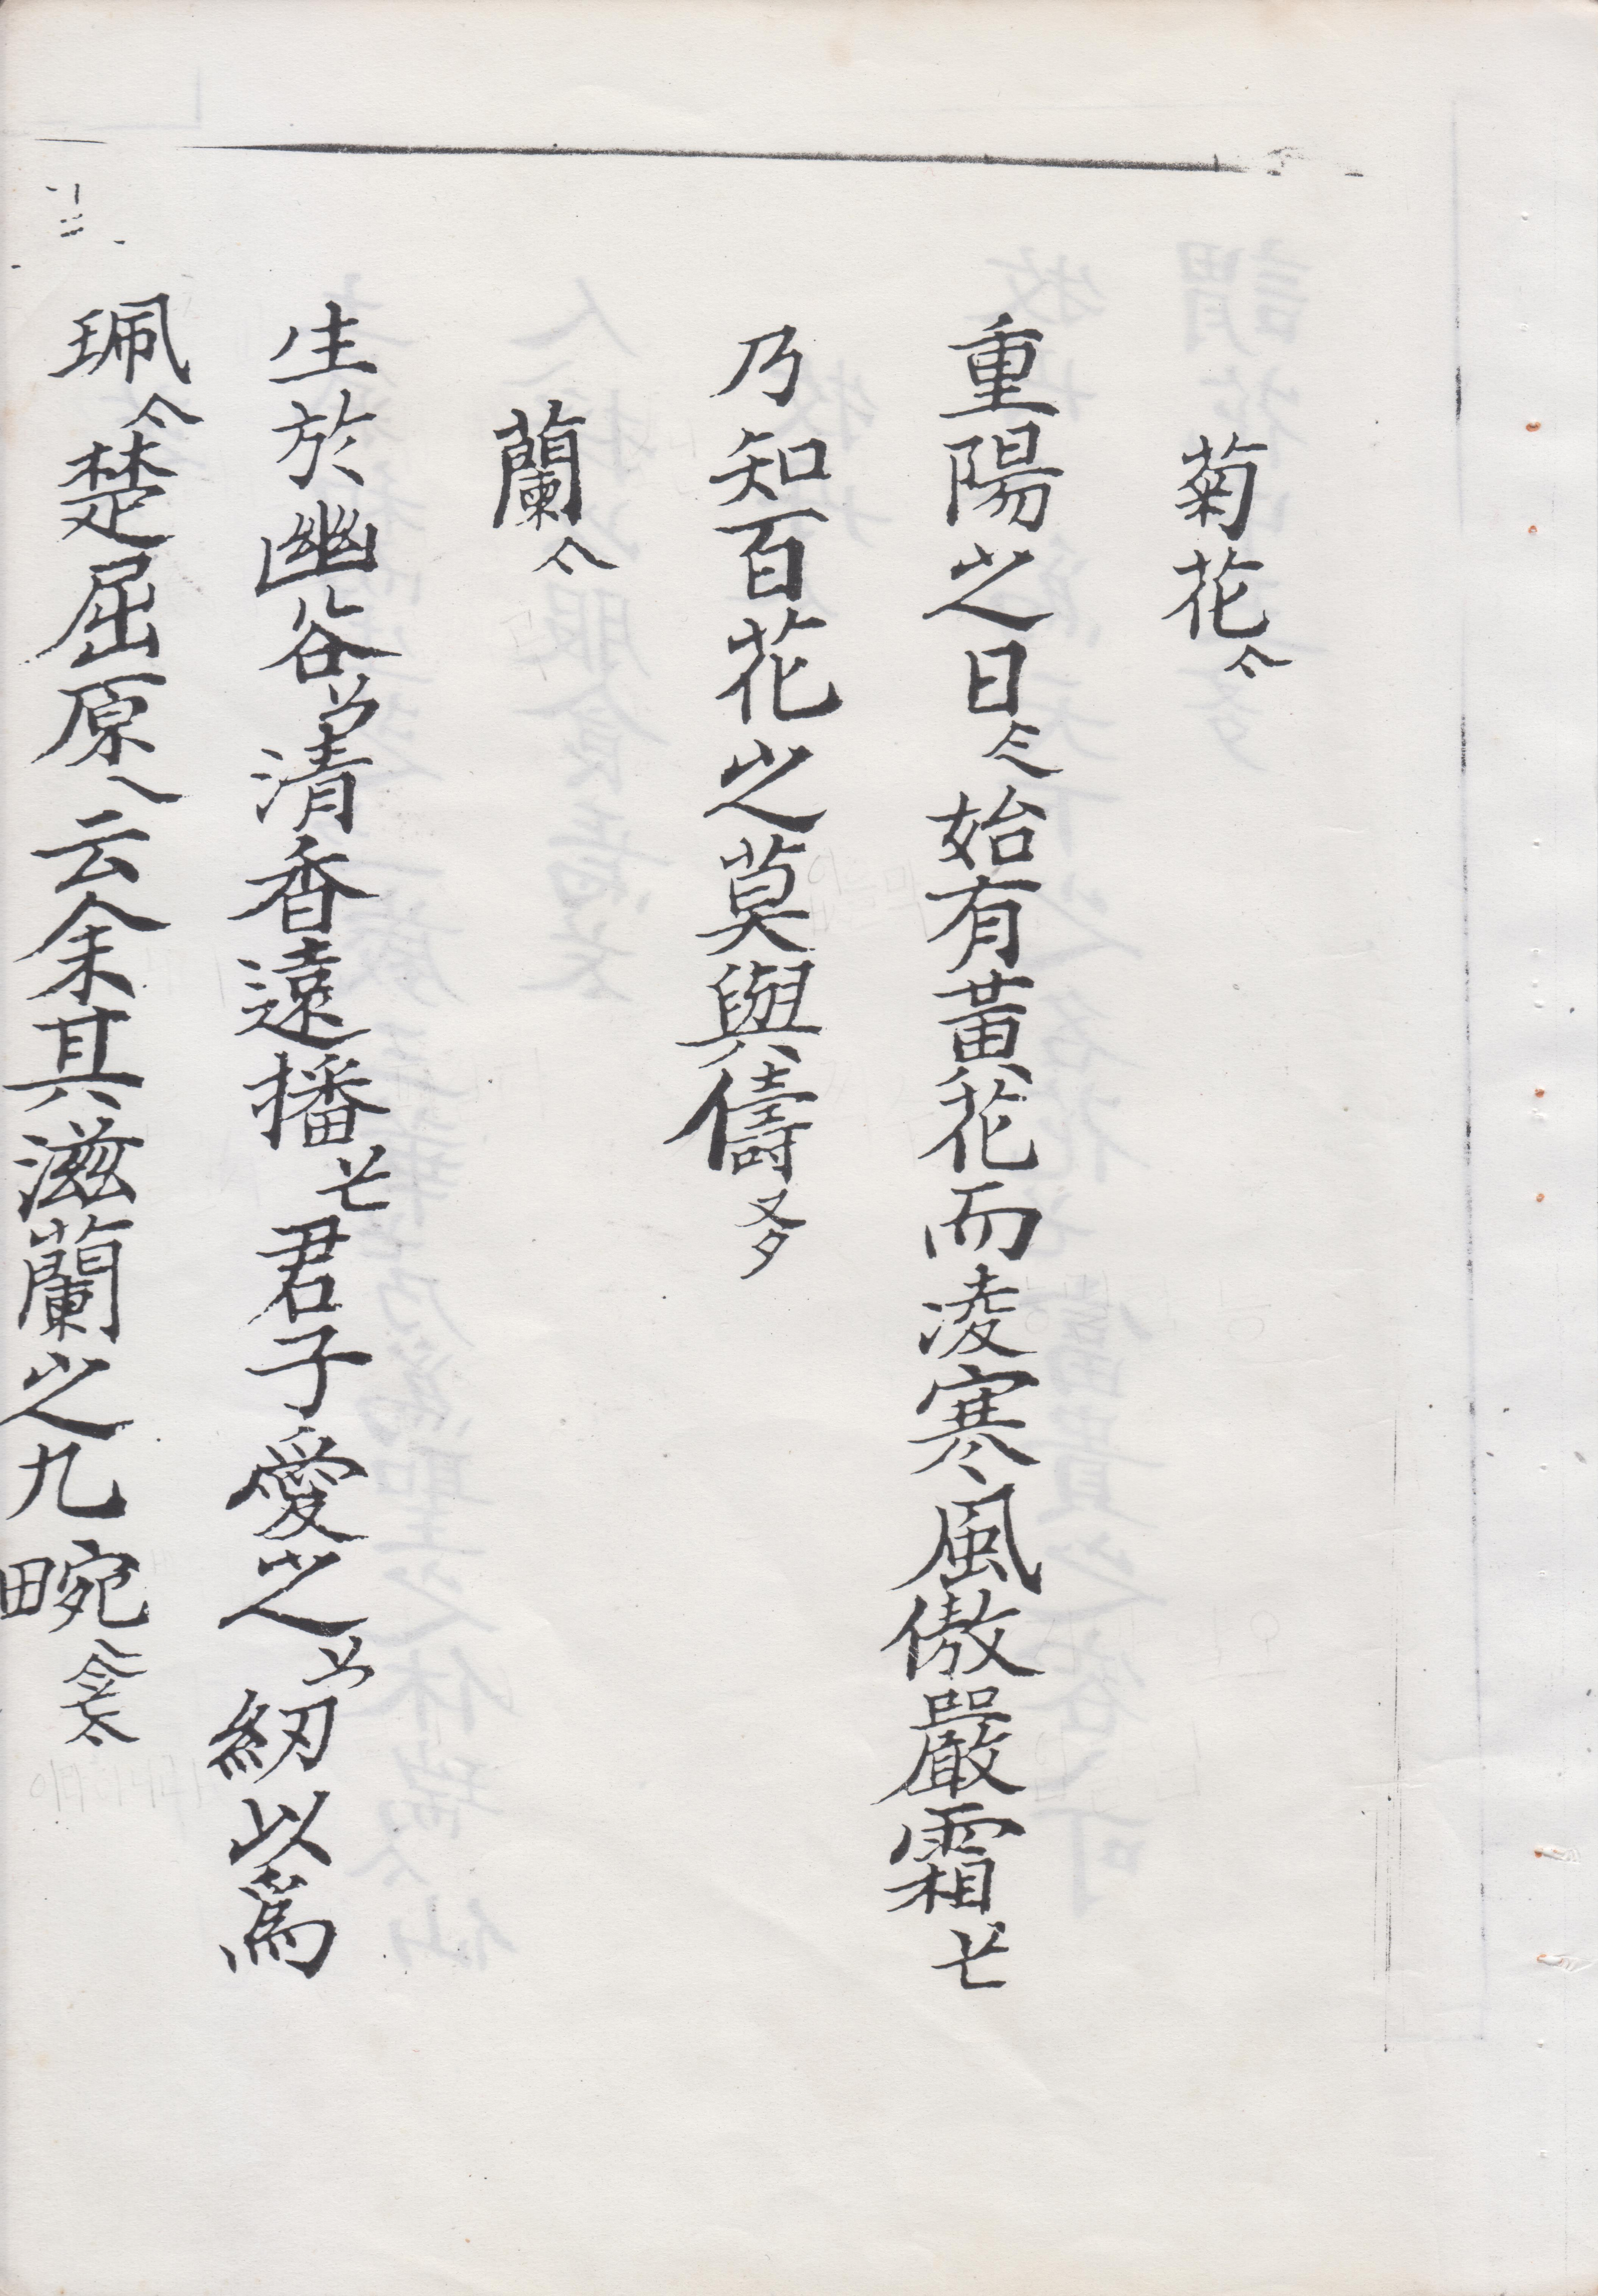 菊花𠆢
重陽之日 始有黃花而凌寒風傲嚴霜
乃知百花之莫與儔
蘭𠆢
生於幽谷 清香遠播 君子愛之 紉以爲
珮𠆢楚屈原 云余其滋蘭之九畹